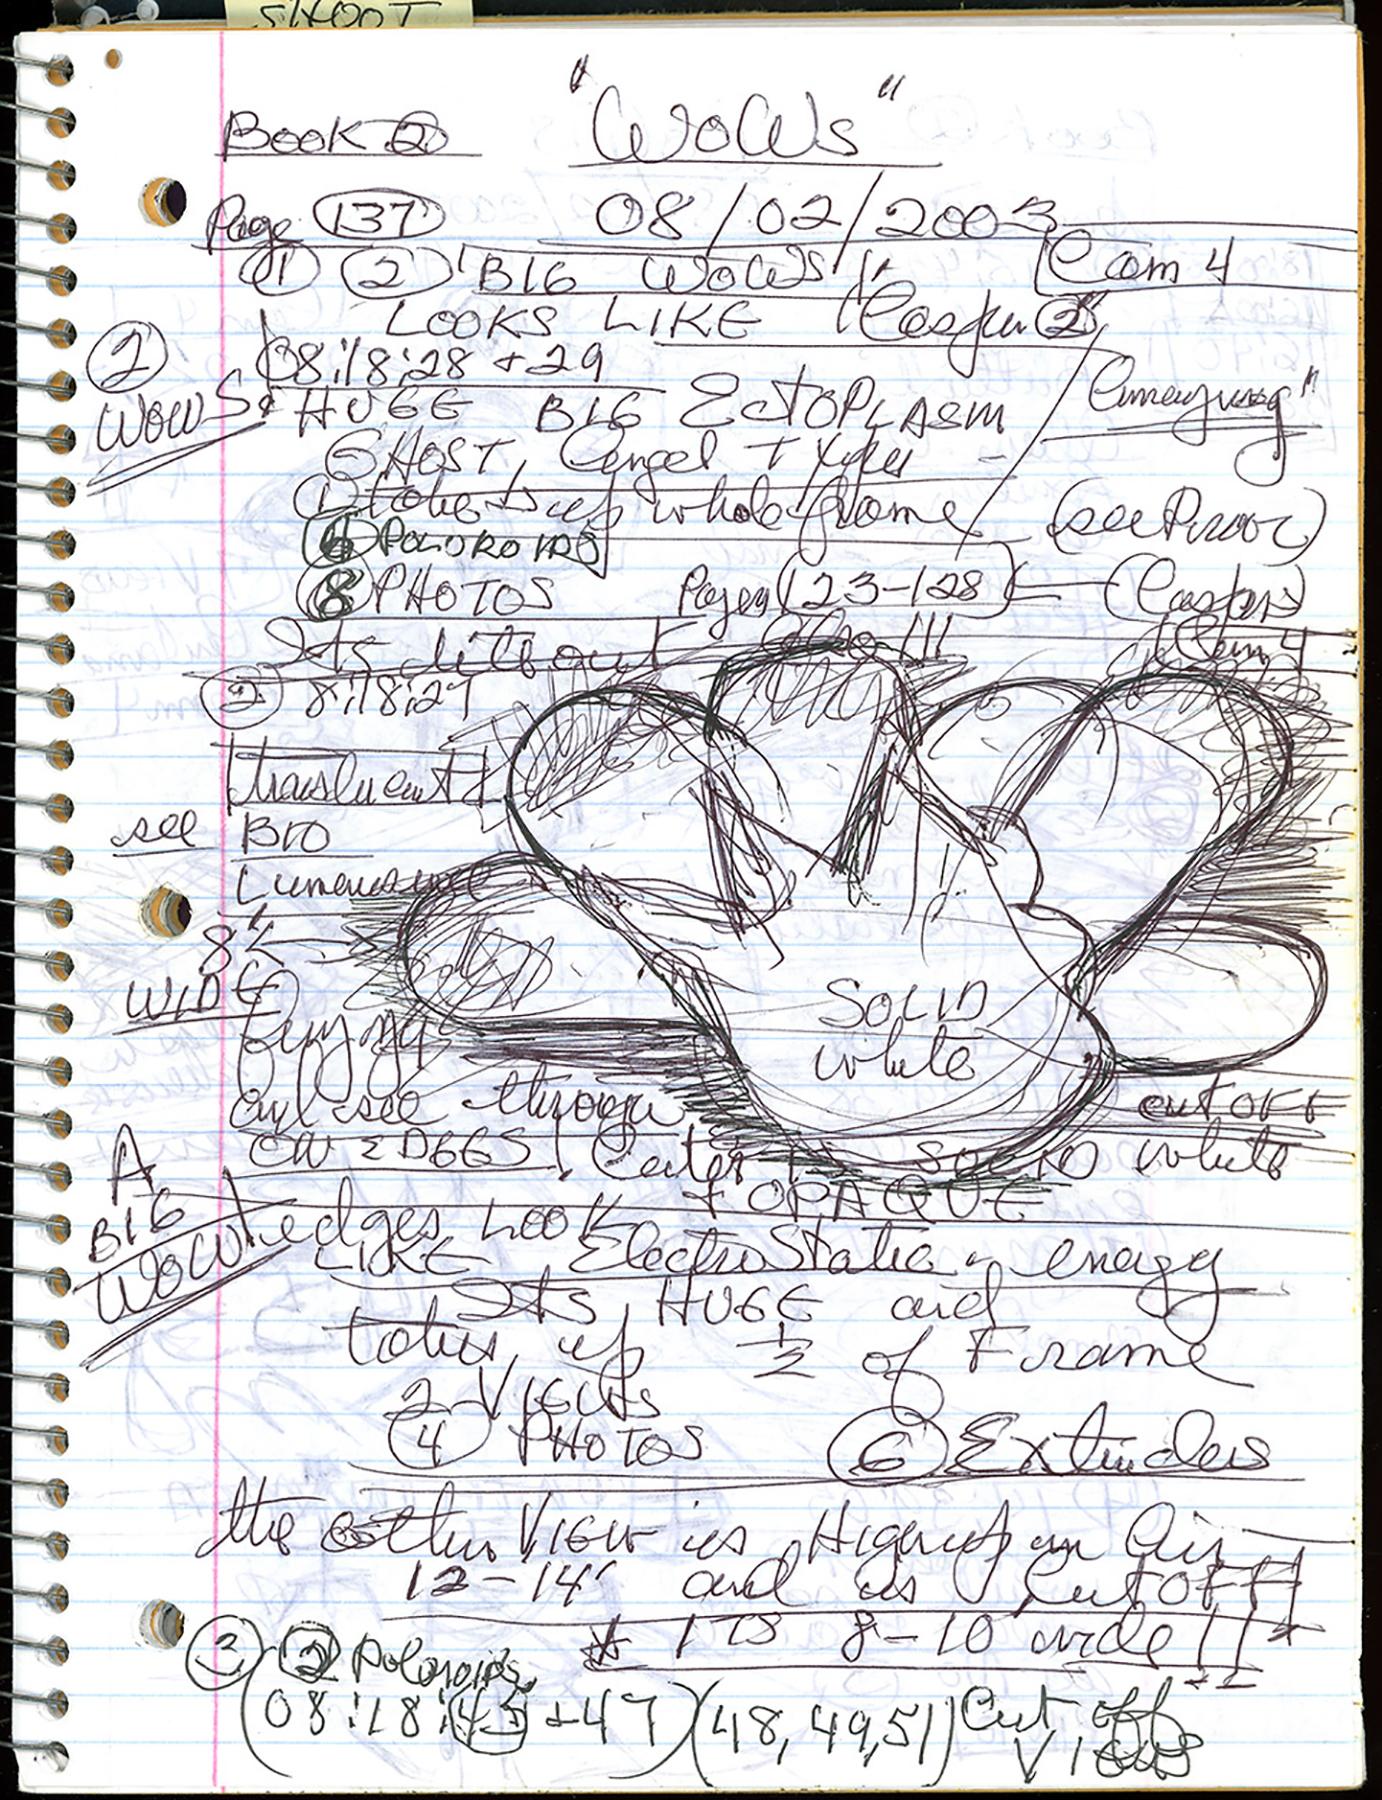 SHOOT
Book 2 "WOWS"
Page 137 08/02/2003
1 2 "BIG WOWS" Cam 4
LOOKS LIKE "Casper 2"
2 08:18:28 + 29
WOWS HUGE BIG ECTOPLASM "amazing"
GHOST, Angel + 
1 takes up whole frame (see Proof)
6 POLOROIDS
8 PHOTOS Pages 123-128 (Casper)
Its lit out also!!! Cam 4
2 8:18:27
translucent
see Bio
Lumenesence
8'
WIDE
flying
SOLID
white
and see through cut OFF
ON EDGES! Center is solid white
A + OPAQUE
BIG
WOW! edges LOOK
LIKE ElectroStatic energy
Its HUGE and
takes up 1/2 of Frame
2 VIEWS
4 PHOTOS 6 Extrudes
the other VIEW is High up in Air
12-14' and is CUT OFF!
* ITS 8-10 wide!! *
3 2 Poloroids
(08:18:43 + 47) (48,49,51) Cut off
VIEWS